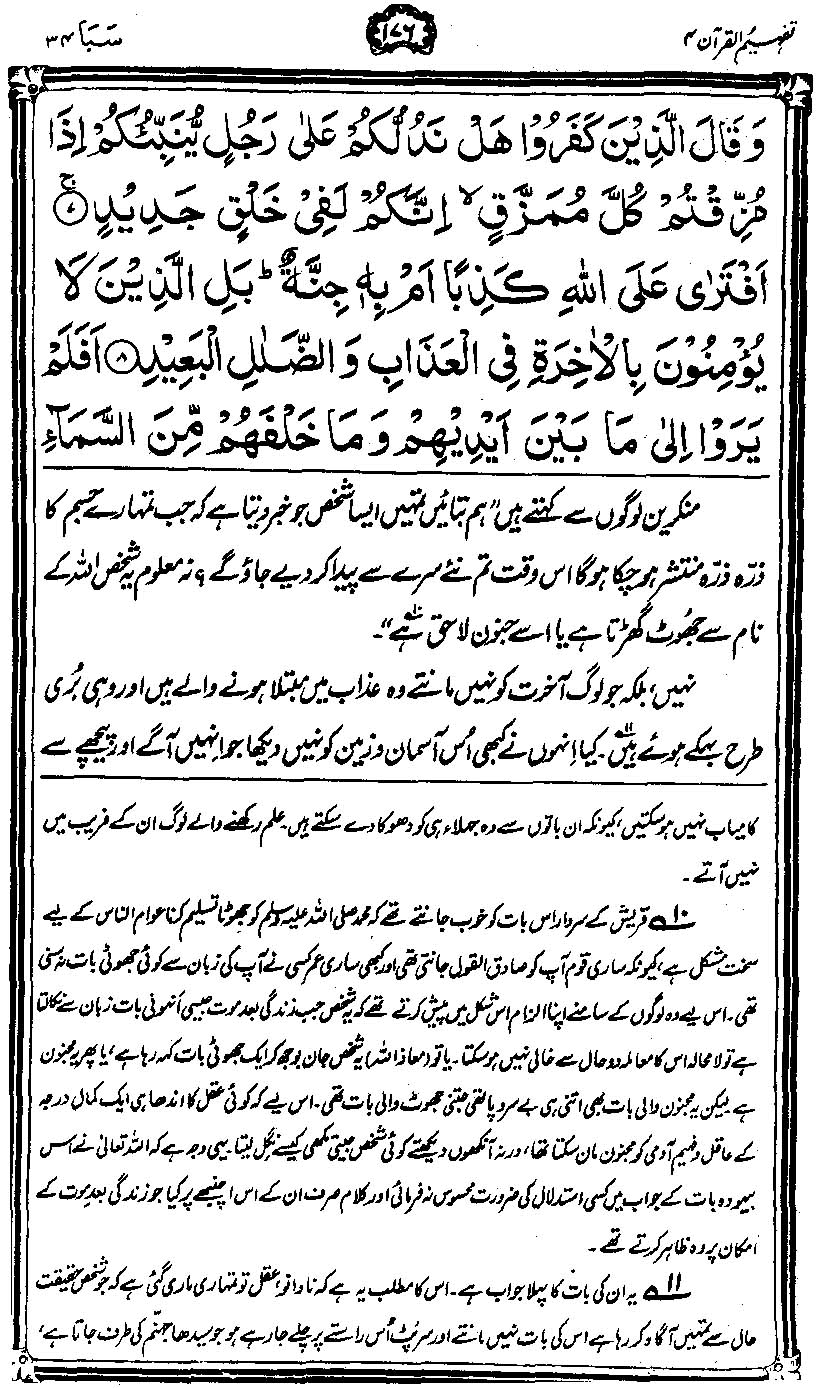 تفہیم القرآن ۴
۱۷۶
سَبَا ۳۴
وَقَالَ الَّذِيْنَ كَفَرُوْا هَلْ نَدُلُّكُمْ عَلٰى رَجُلٍ يُّنَبِّئُكُمْ اِذَا
مُزِّقْتُمْ كُلَّ مُمَزَّقٍ ۙ اِنَّكُمْ لَفِيْ خَلْقٍ جَدِيْدٍ ۚ﴿۷﴾
اَفْتَرٰى عَلَى اللّٰهِ كَذِبًا اَمْ بِهٖ جِنَّةٌ ؕ بَلِ الَّذِيْنَ لَا
يُؤْمِنُوْنَ بِالْاٰخِرَةِ فِي الْعَذَابِ وَالضَّلٰلِ الْبَعِيْدِ ﴿۸﴾ اَفَلَمْ
يَرَوْا اِلٰى مَا بَيْنَ اَيْدِيْهِمْ وَمَا خَلْفَهُمْ مِّنَ السَّمَآءِ
منکرین لوگوں سے کہتے ہیں ”ہم بتائیں تمہیں ایسا شخص جو خبر دیتا ہے کہ جب تمہارے جسم کا
ذرّہ ذرّہ منتشر ہو چکا ہوگا اس وقت تم نئے سرے سے پیدا کر دیے جاؤ گے؟ نہ معلوم یہ شخص اللہ کے
نام سے جھُوٹ گھڑتا ہے یا اسے جنون لاحق ہے۱۰“۔
نہیں، بلکہ جو لوگ آخرت کو نہیں مانتے وہ عذاب میں مبتلا ہونے والے ہیں اور وہی بُری
طرح بہکے ہوئے ہیں۱۱۔ کیا اِنہوں نے کبھی اُس آسمان و زمین کو نہیں دیکھا جو اِنہیں آگے اور پیچھے سے
کامیاب نہیں ہو سکتیں، کیونکہ ان باتوں سے وہ جہلاء ہی کو دھوکا دے سکتے ہیں۔ علم رکھنے والے لوگ ان کے فریب میں
نہیں آتے۔
۱۰ قریش کے سردار اس بات کو خوب جانتے تھے کہ محمد صلی اللہ علیہ وسلم کو جھوٹا تسلیم کرنا عوام الناس کے لیے
سخت مشکل ہے، کیونکہ ساری قوم آپ کو صادق القول جانتی تھی اور کبھی ساری عمر کسی نے آپ کی زبان سے کوئی جھوٹی بات نہ سنی
تھی۔ اس لیے وہ لوگوں کے سامنے اپنا الزام اس شکل میں پیش کرتے تھے کہ یہ شخص جب زندگی بعد موت جیسی اَنہونی بات زبان سے نکالتا
ہے تو لامحالہ اس کا معاملہ دو حال سے خالی نہیں ہو سکتا۔ یا تو (معاذ اللہ) یہ شخص جان بوجھ کر ایک جھوٹی بات کہہ رہا ہے، یا پھر یہ مجنون
ہے لیکن یہ مجنون والی بات بھی اتنی ہی بے سروپا تھی جتنی جھوٹ والی بات تھی۔ اس لیے کہ کوئی عقل کا اندھا ہی ایک کمال درجہ
کے عاقل و فہیم آدمی کو مجنون مان سکتا تھا، ورنہ آنکھوں دیکھتے کوئی شخص جیتی مکھی کیسے نگل لیتا۔ یہی وجہ ہے کہ اللہ تعالیٰ نے اس
بیہودہ بات کے جواب میں کسی استدلال کی ضرورت محسوس نہ فرمائی اور کلام صرف ان کے اس اچنبھے پر کیا جو زندگی بعد موت کے
امکان پر وہ ظاہر کرتے تھے۔
۱۱ یہ ان کی بات کا پہلا جواب ہے۔ اس کا مطلب یہ ہے کہ نادانو، عقل تو تمہاری ماری گئی ہے کہ جو شخص حقیقت
حال سے تمہیں آگاہ کر رہا ہے اس کی بات نہیں مانتے اور سرپٹ اُس راستے پر چلے جا رہے ہو جو سیدھا جہنّم کی طرف جاتا ہے،